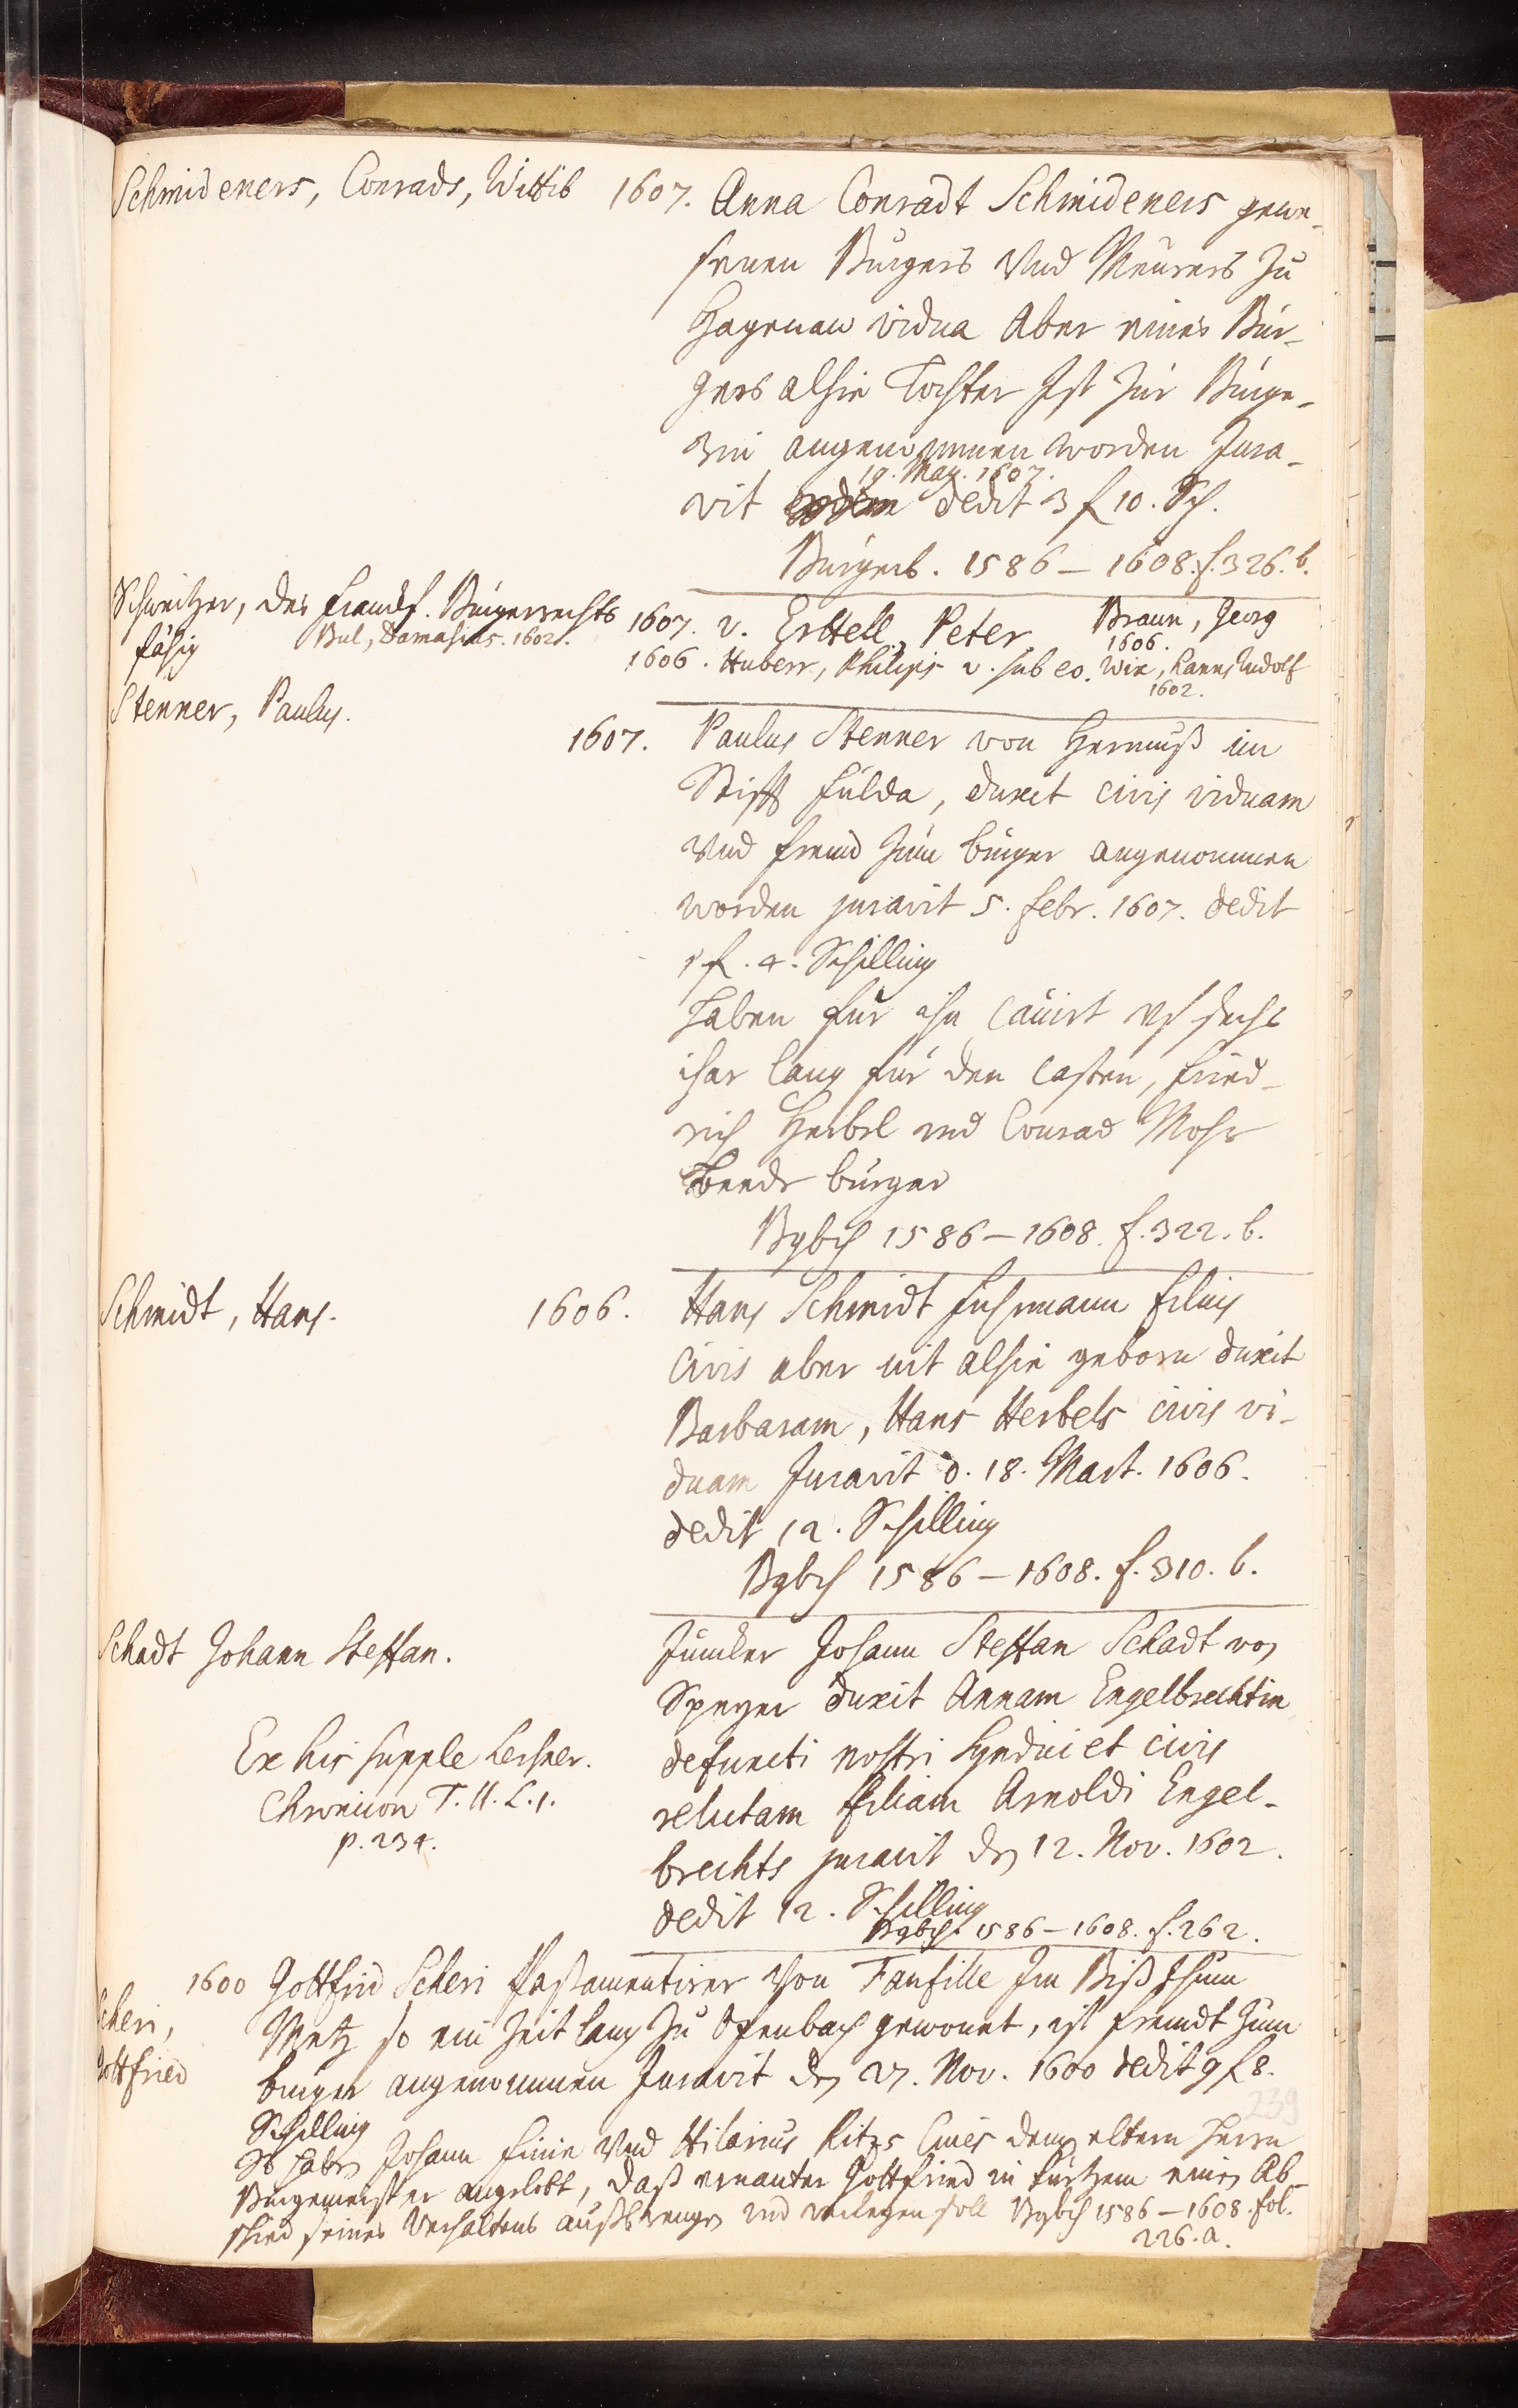 Schmideners, Conrads, Wittib 1607. Anna Conradt Schmideners gewe-
senen Burgers Vnd Meurers zu
Hagenau vidua Aber eines Bur-
gers alhie Tochter Ist zur Burge-
rin angenommen worden Jura-
19. May. 1607.
vit dedit 3 f 10. Sch.
Burgerb. 1586 – 1608. f. 326. b.
Schweitzer, des Franckf. Bürgerrechts
fähig Bul, Damasius. 1602.
1607. v. Erttell, Peter Braun, Georg
1606.
1606. Huberr, Philips v. sub eo. Wix, Hanns Rudolf
1602.
Stenner, Paulus.
1607. Paulus Stenner von Hermuß im
Stifft Fulda, duxit civis viduam
Vnd fremd zum burger angenommen
worden juravit 5. Febr. 1607. dedit
1 f. 4. Schilling
Haben für ihn cavirt vf sechs
ihar lang für den Casten, Fried-
rich Herbel vnd Conrad Mohr
Beede burger
Bgbch 1586 – 1608. f. 322. b.
Schmidt, Hans. 1606. Hans Schmidt Fuhrmann filius
Civis aber nit alhie geborn duxit
Barbaram, Hans Herbels civis vi-
duam Juravit d. 18. Mart. 1606.
dedit 12. Schilling
Bgbch 1586 – 1608. f. 310. b.
Schadt Johann Steffan.
Juncker Johann Steffan Schadt von
Speyer duxit Annam Engelbrechtin
defuncti nostri Syndici et civis
relictam filiam Arnoldi Engel-
brechts juravit den 12. Nov. 1602.
dedit 12. Schilling
Bgbch. 1586 – 1608. f. 262.
Ex his supple Lersner.
Chronicon T. II. L. 1.
p. 234.
Scheri,
Gottfried
1600 Gottfrid Scheri Passamentirer Von Fanfille Im Bißthum
Metz so ein Zeit lang zu Ofenbach gewonet, ist fremdt zum
burger angenommen Juravit den 27. Nov. 1600 dedit 9 f 8.
Schilling
239
Es haben Johann Finie Vnd Hilarius Ritzs Cives dem eltern Herrn
Burgemeister angelobt, daß ernanter Gottfried in kurtzem einen Ab-
schied seines Verhaltens außbrengen vnd verlegen soll Bgbch 1586 – 1608. fol.
226. a.